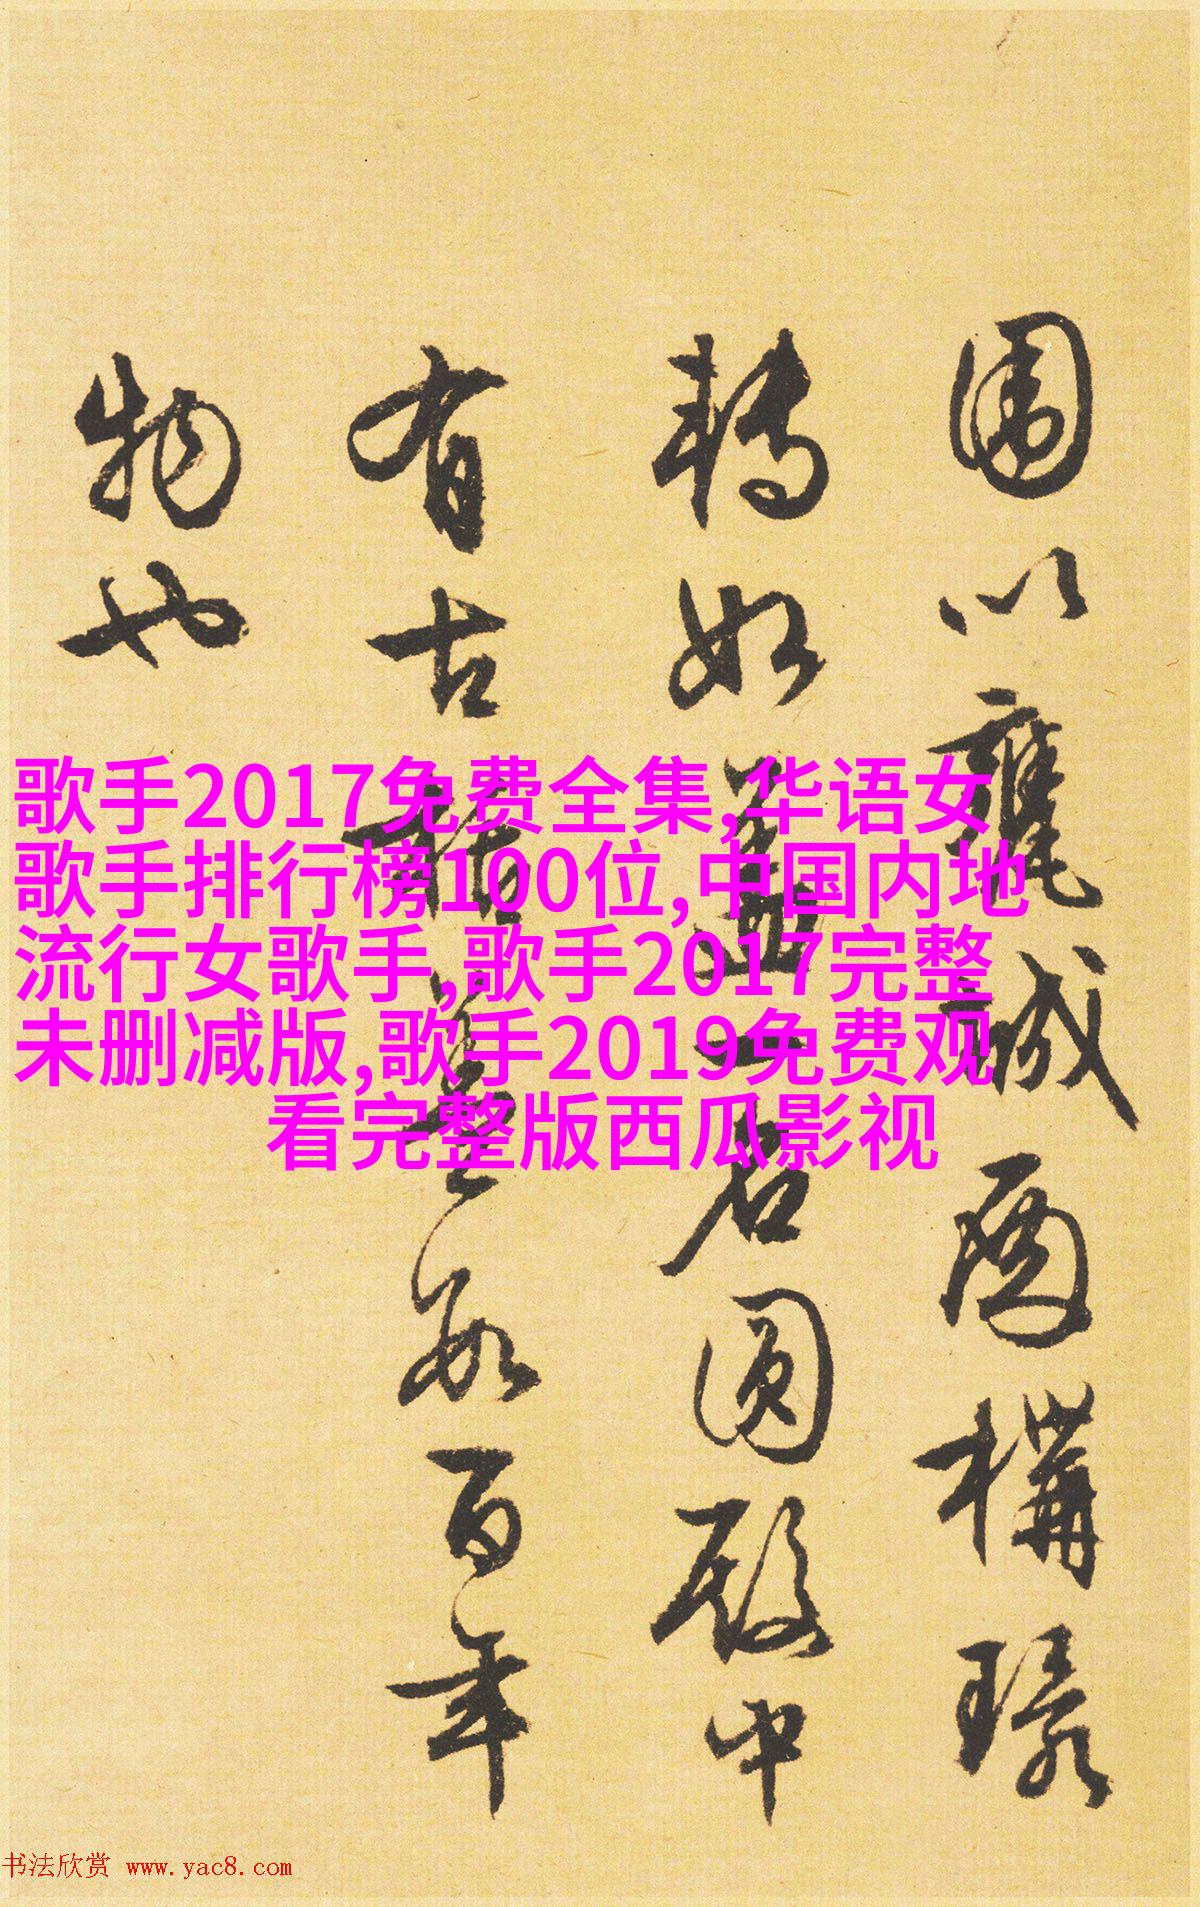 围以瓮城而構環
轉如盖一名圆殿中
有古栝盖数百年
物也
歌手2017免费全集,华语女
歌手排行榜100位,中国内地
流行女歌手,歌手2017完整
未删减版,歌手2019免费观
看完整版西瓜影视
书法欣赏 www.yac8.com